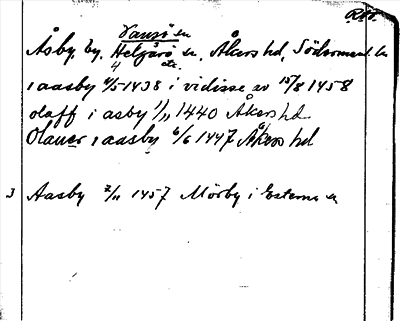 Vansö sn
Åsby, by, Helgarö sn, Åkers hd, Södermanl. ln
i aasby 4/5 1438 i vidisse av 15/8 1458
olaff i asby 1/11 1440 Åkers hd
Olauer i aasby 6/6 1447 Åkers hd
3 Aasby 2/11 1457 Mörby i Esterna sn